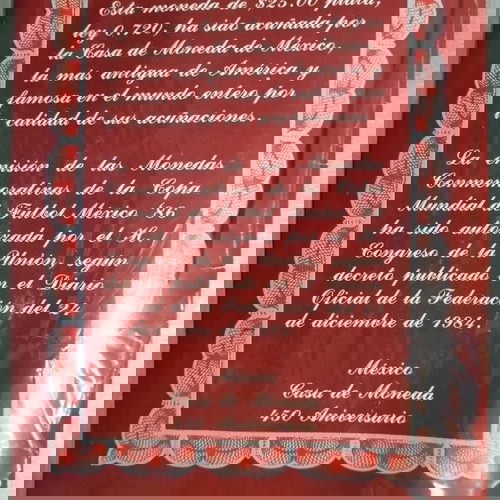 Esta moneda de $25.00 plata,
ley 0.720, ha sido acuñada por
la Casa de Moneda de México,
la mas antigua de América y
famosa en el mundo entero por
calidad de sus acuñaciones.
La emisión de las Monedas
Conmemorativas de la Copa
Mundial de Fútbol México '86
ha sido autorizada por el H.
Congreso de la Unión, según
decreto publicado en el Diario
Oficial de la Federación del 24
de diciembre de 1984.
México
Casa de Moneda
450 Aniversario